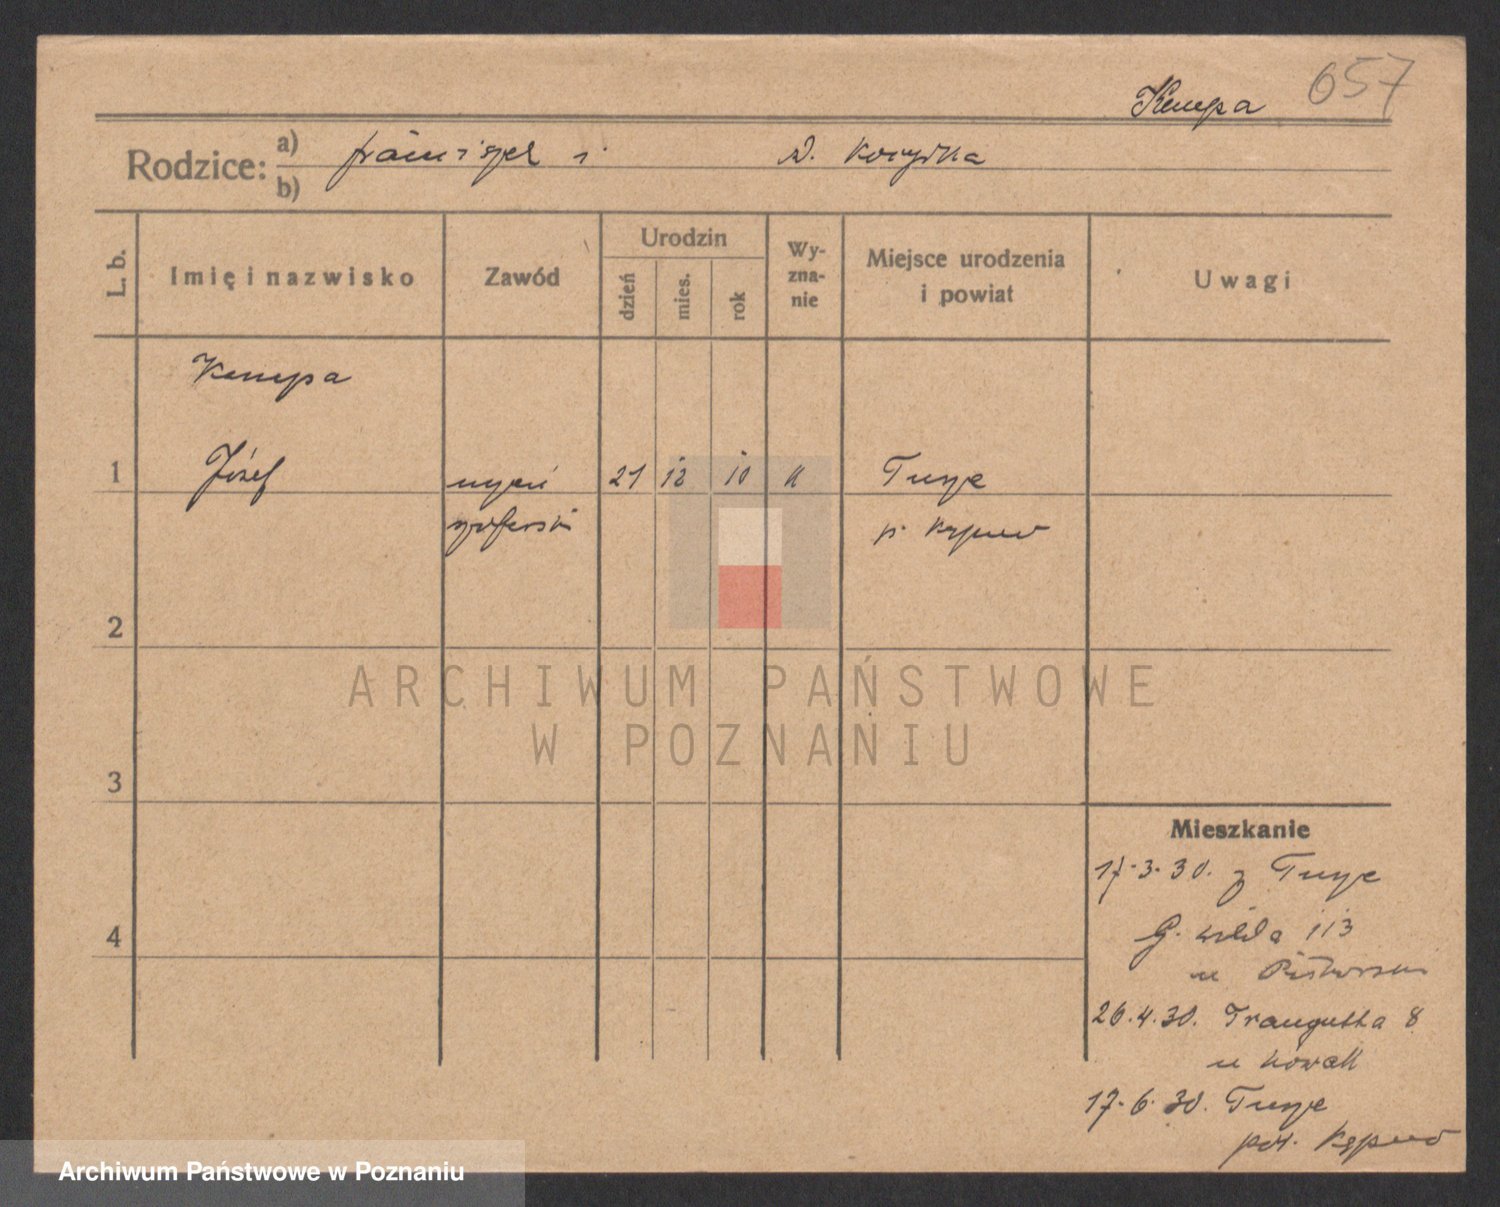 Kempa 657
Rodzice: a) franciszek i
b)
L. b.
Imię i nazwisko
Zawód
Urodzin
dzień
mies.
rok
Wy-
zna-
nie
Miejsce urodzenia
i powiat
Uwagi
Kempa
1 Józef uczeń 21 12 10 k Turze
szoferski p. Kępno
2
3
4
Mieszkanie
17.3.30. z Turze
G. Wilda 113
u
26.4.30. Traugutta 8
u Nowak
17.6.30. Turze
pow. Kępno
ARCHIWUM PAŃSTWOWE
W POZNANIU
Archiwum Państwowe w Poznaniu